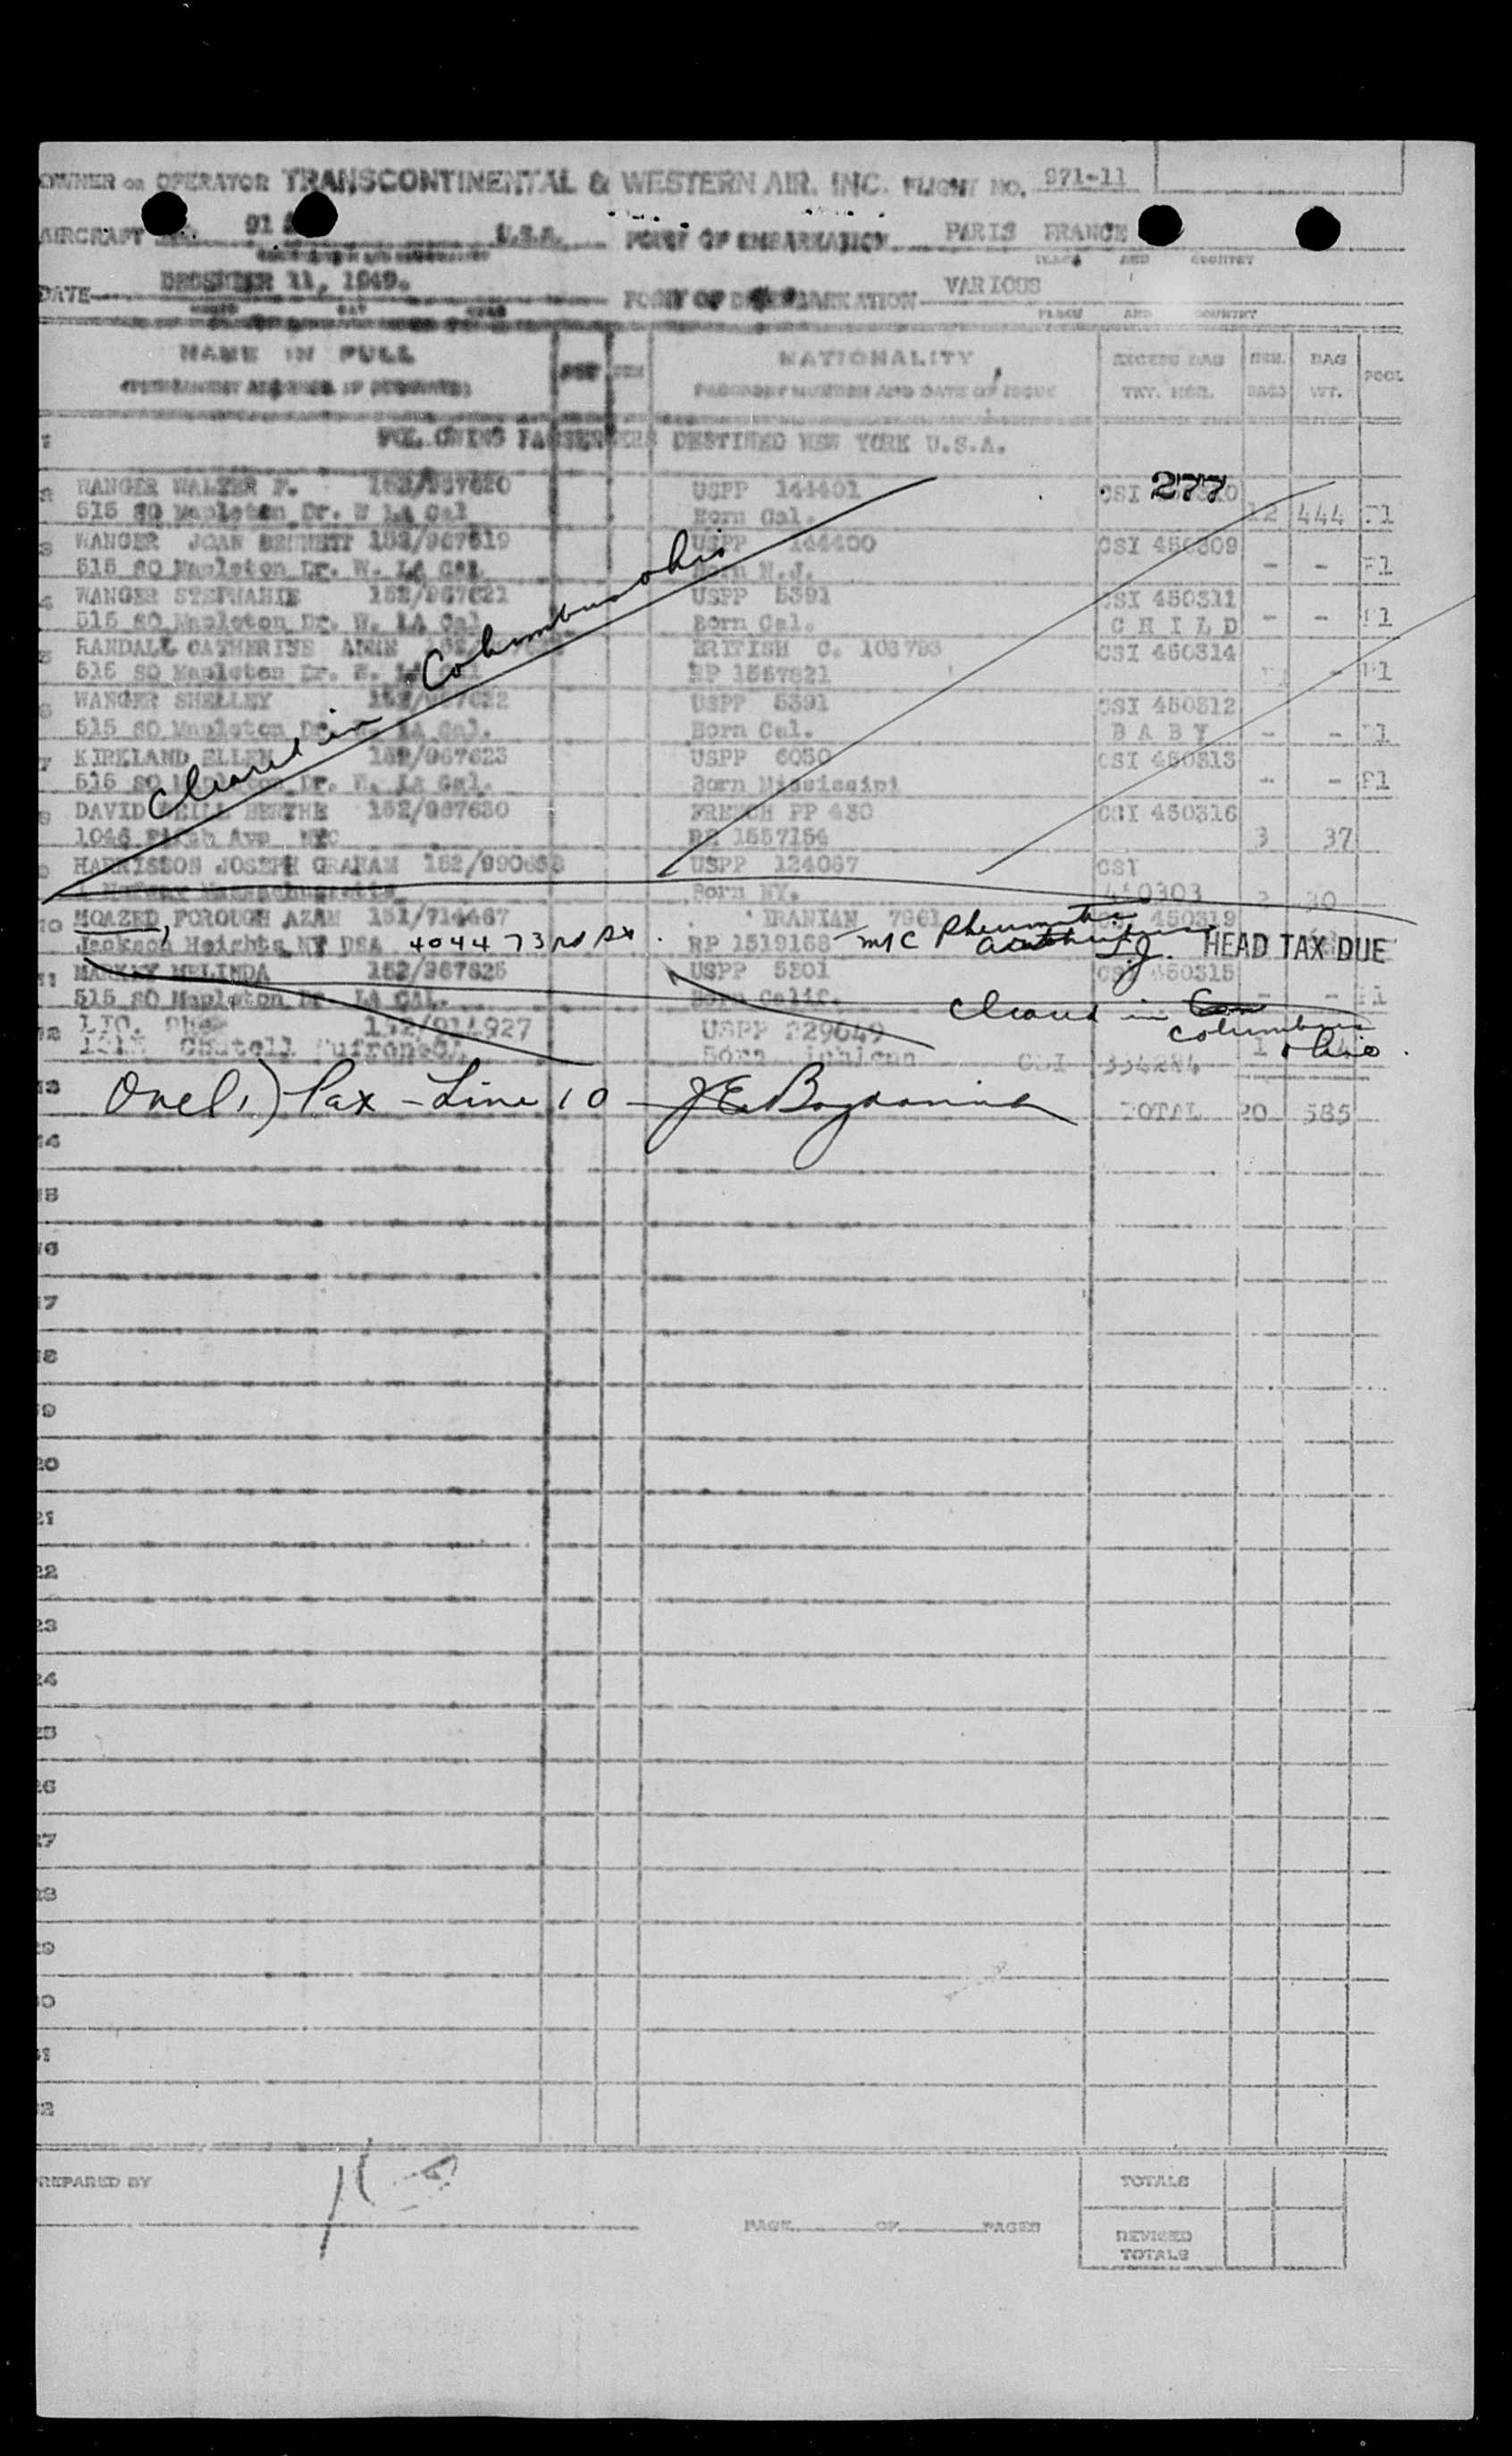 OWNER OR OPERATOR TRANSCONTINENTAL & WESTERN AIR, INC. FLIGHT NO. 971-11
AIRCRAFT 91 U.S.A. POINT OF EMBARKATION PARIS FRANCE
PLACE AND COUNTRY
DATE DECEMBER 11, 1949. POINT OF DISEMBARKATION VARIOUS
PLACE AND COUNTRY
NAME IN FULL NATIONALITY EXCESS BAG NBR. BAG POOL
PASSPORT NUMBER AND DATE OF ISSUE TKT. NBR. BAGS WT.
1 FOLLOWING PASSENGERS DESTINED NEW YORK U.S.A.
277
2 WANGER WALTER F. 152/967620 USPP 144401 CSI
515 SO Mapleton Dr. W LA Cal Born Cal. 12 444 P1
3 WANGER JOAN BENNETT 152/967619 USPP 144400 CSI 450309
515 SO Mapleton Dr. W. LA Cal Born N.J. - - P1
4 WANGER STEPHANIE 152/967621 USPP 5391 CSI 450311
515 SO Mapleton Dr. W. LA Cal Born Cal. CHILD - - P1
5 RANDALL CATHERINE ANNE BRITISH C. 103793 CSI 450314
515 SO Mapleton Dr. W. RP 1557821 - P1
6 WANGER SHELLEY 152/967622 USPP 5391 CSI 450312
515 SO Mapleton Dr. W. LA Cal. Born Cal. BABY - - P1
7 KIRKLAND ELLEN 152/967623 USPP 6050 CSI 450313
515 SO Mapleton Dr. W. LA Cal. Born Mississipi - - P1
Cleared in Columbus ohio
8 DAVID WEILL BERTHE 152/967630 FRENCH PP 430 CSI 450316
1046 Fifth Ave NYC RP 1557154 3 37
9 HARRISSON JOSEPH GRAHAM USPP 124067 CSI
Massachussetts Born NY. 450303 2 30
10 MOAZED, FOROUGH AZAM 151/714467 IRANIAN 7961 450319
Jackson Heights NY USA 4044 73rd St. RP 1519168 HEAD TAX DUE
11 MARKEY MELINDA 152/967625 USPP 5301 CSI 450315
515 SO Mapleton Dr. LA CAL. Born Calif. - - P1
Cleared in Columbus Ohio.
12 152/914927 USPP 229649
Born CSI 334284 1
13 One (1) Pax - Line 10 TOTAL 20 585
14
15
16
17
18
19
20
21
22
23
24
25
26
27
28
29
30
31
32
PREPARED BY
PAGE OF PAGES
TOTALS
REVISED
TOTALS